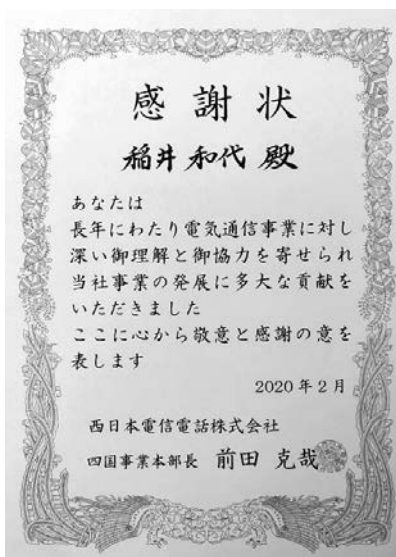 感謝状
稲井和代 殿
あなたは
長年にわたり電気通信事業に対し
深い御理解と御協力を寄せられ
当社事業の発展に多大な貢献を
いただきました
ここに心から敬意と感謝の意を
表します
2020年2月
西日本電信電話株式会社
四国事業本部長 前田 克哉